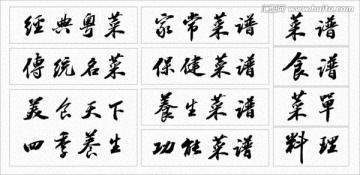 經典粤菜 家常菜谱 菜谱
傳统名菜 保健菜谱 食谱
美食天下 養生菜谱 菜單
四季養生 功能菜谱 料理